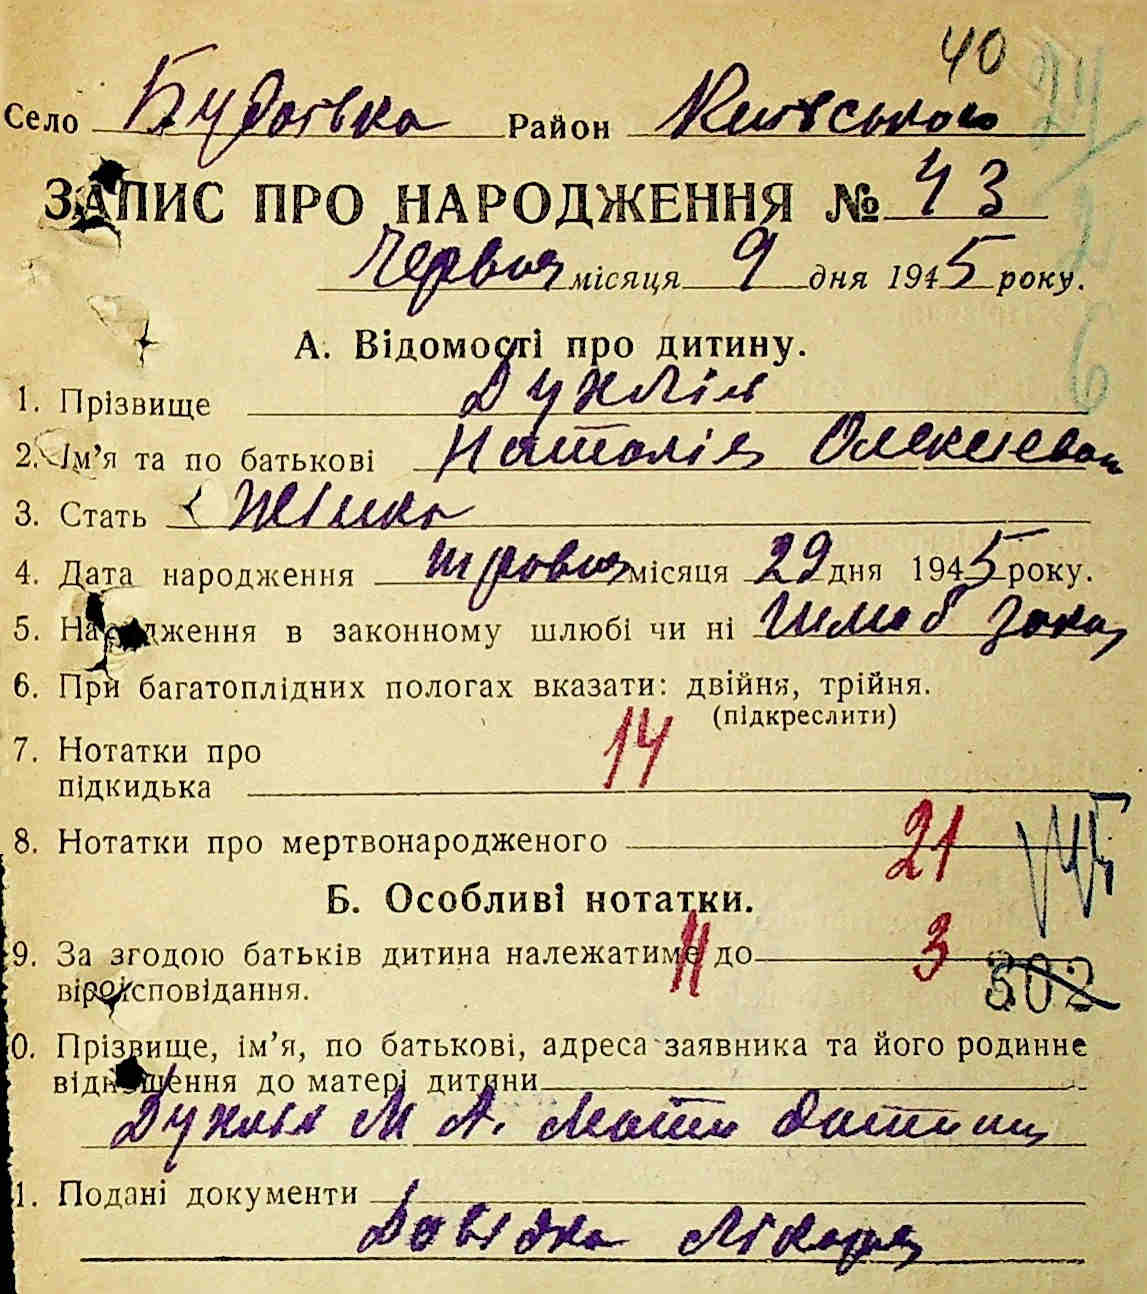 40
Село Будаївка Район Київського
ЗАПИС ПРО НАРОДЖЕННЯ № 43
Червня місяця 9 дня 1945 року.
А. Відомості про дитину.
1. Прізвище
2. Ім’я та по батькові Наталія Олексіевна
3. Стать Жінка
4. Дата народження травня місяця 29 дня 1945 року.
5. Народження в законному шлюбі чи ні шлюб
6. При багатоплідних пологах вказати: двійня, трійня.
(підкреслити)
7. Нотатки про
підкидька 14
8. Нотатки про мертвонародженого 21
Б. Особливі нотатки.
9. За згодою батьків дитина належатиме до 3
віросповідання. 11 302
0. Прізвище, ім’я, по батькові, адреса заявника та його родинне
відношення до матері дитини
М А. Мати
1. Подані документи
Довідка лікаря